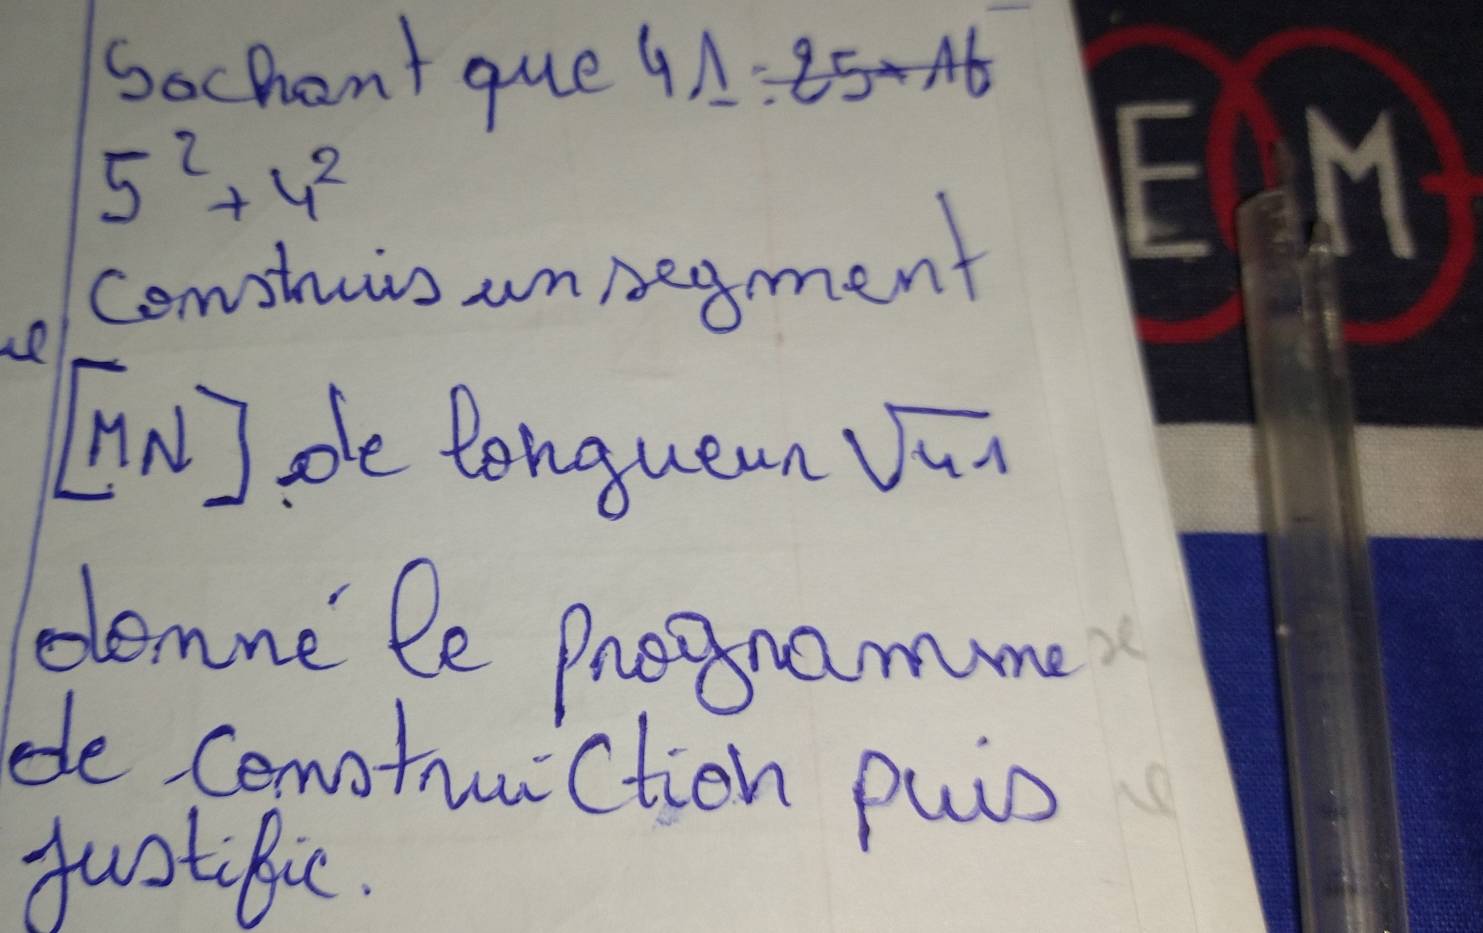 Sachant que 41 = 25+16
5² + 4²
Construis un segment
[MN] de longueur √41
donné le programme
de construiction puis
justifie.
E M